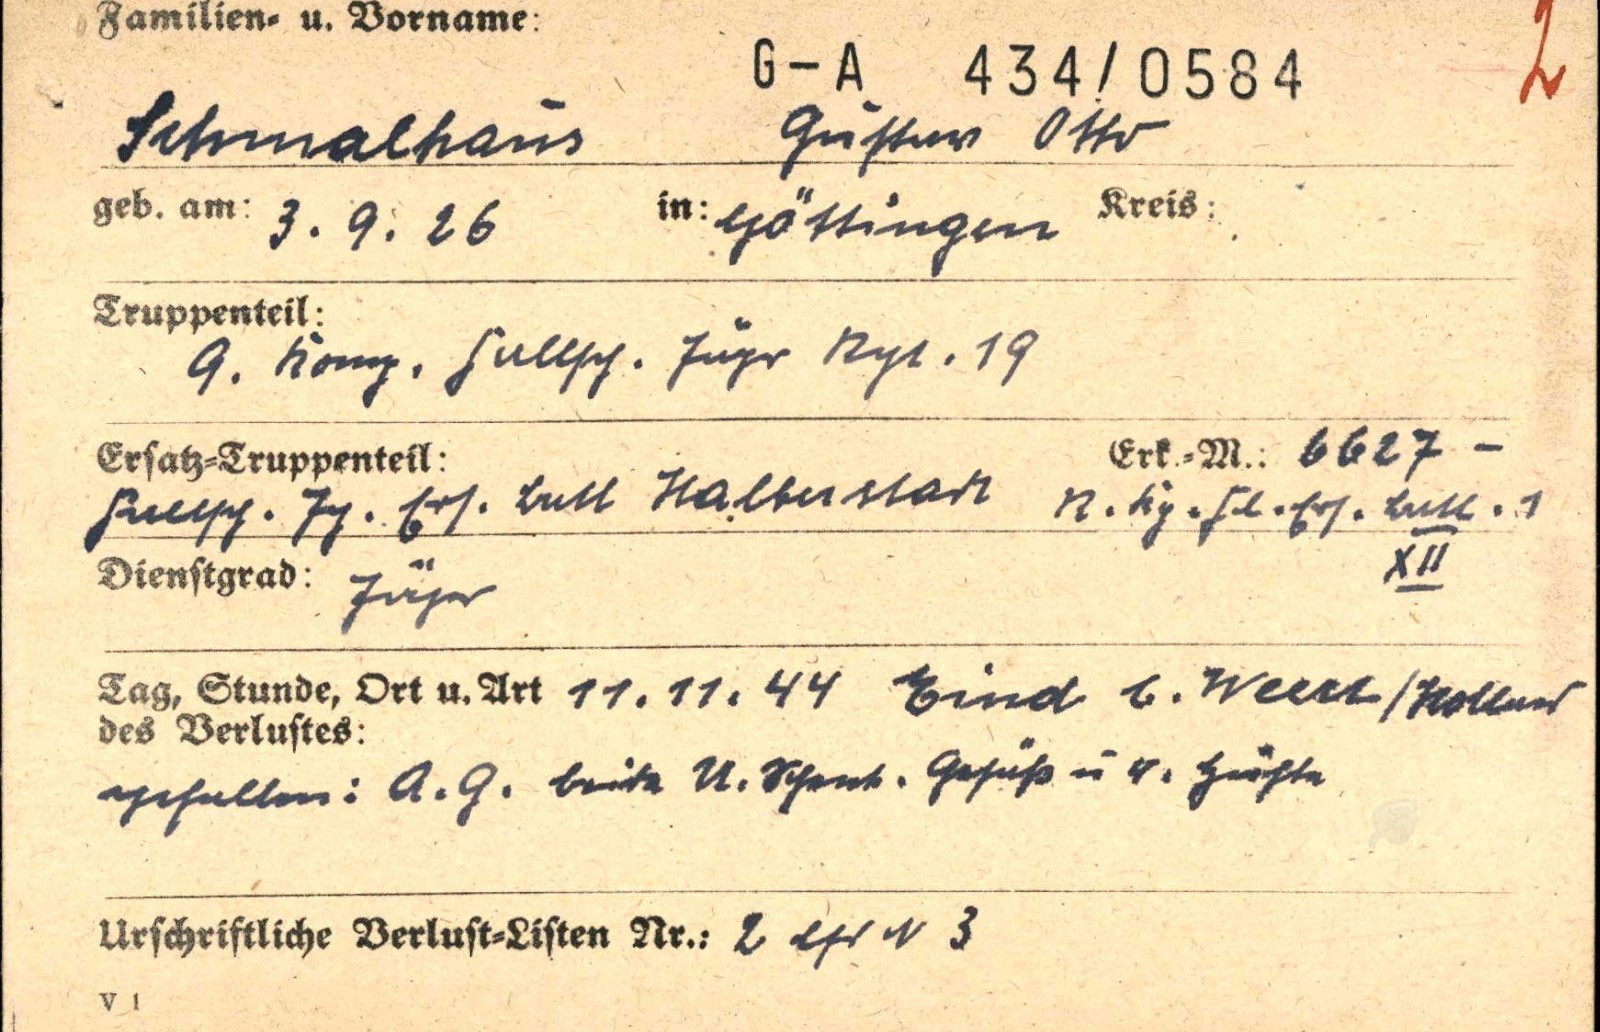 Familien- u. Vorname:
G-A 434/0584
2
Schmalhaus Gustav Otto
geb. am: 3. 9. 26 in: Göttingen Kreis:
Truppenteil:
9. Komp. Fallsch. Jäger Rgt. 19
Ersatz-Truppenteil: Erk.-M.: 6627 -
Fallsch. Jg. Ers. Batl Halberstadt N. Kp. Fl. Ers. Batl. 1
XII
Dienstgrad: Jäger
Tag, Stunde, Ort u. Art 11. 11. 44 Eind b. Weert / Holland
des Verlustes:
gefallen: A. G. beide U. Schenk. Gesäß u r. Hüfte
Urschriftliche Verlust-Listen Nr.: 2 lfd N 3
V 1